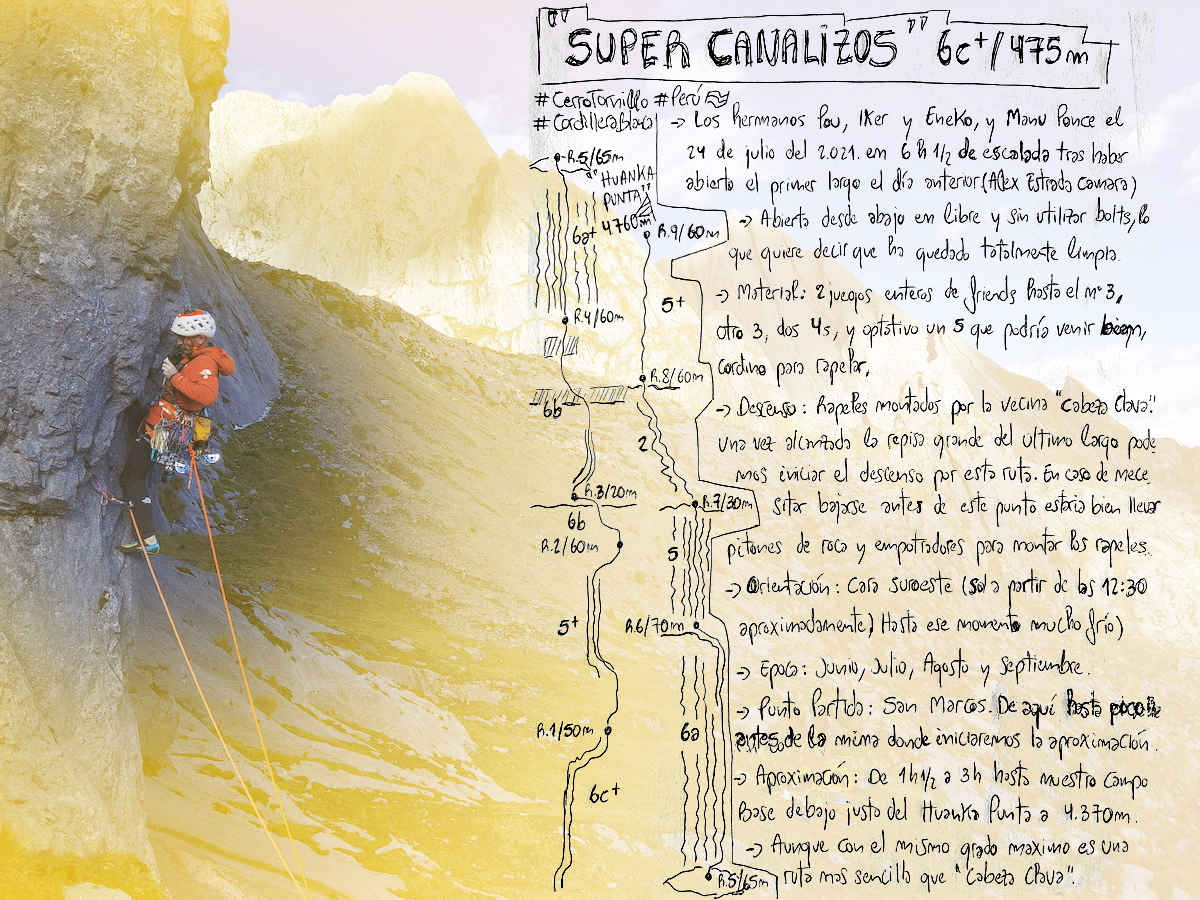 "SUPER CANALIZOS" 6c+/475m
#CerroTornillo #Perú
#CordilleraBlanca
-> Los hermanos Pou, IKer y EneKo, y Manu Ponce el
24 de julio del 2.021. en 6 h 1/2 de escalada tras haber
abierto el primer largo el día anterior (Alex Estrada Camara)
-> Abierta desde abajo en libre y sin utilizar bolts, lo
que quiere decir que ha quedado totalmente limpia.
-> Material: 2 juegos enteros de friends hasta el nº 3,
otro 3, dos 4s, y optativo un 5 que podría venir bien,
cordino para rapelar,
-> Descenso: Rapeles montados por la vecina "Cabeza Clava".
una vez alcanzada la repisa grande del ultimo largo pode
mos iniciar el descenso por esta ruta. En caso de nece
sitar bajarse antes de este punto estaria bien llevar
pitones de roca y empotradores para montar los rapeles.
-> Orientación: Cara suroeste (sol a partir de las 12:30
aproximadamente, Hasta ese momento mucho frío)
-> Epoca: Junio, Julio, Agosto y Septiembre.
-> Punto Partida: San Marcos. De aquí hasta poco
antes de la mina donde iniciaremos la aproximación.
-> Aproximación: De 1h1/2 a 3h hasta nuestro Campo
Base debajo justo del Huanka Punta a 4.370m.
-> Aunque con el mismo grado maximo es una
ruta mas sencilla que "Cabeza Clava".
R.5/65m
"HUANKA
PUNTA"
4.760m
6a+
R.4/60m
6b
R.3/20m
6b
R.2/60m
5+
R.1/50m
6c+
R.9/60m
5+
R.8/60m
2
R.7/30m
5
R.6/70m
6a
R.5/65m